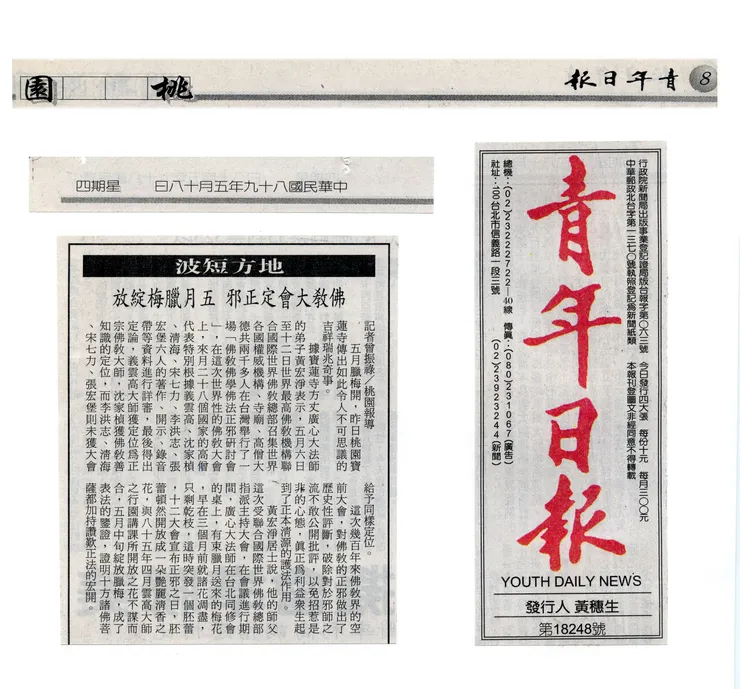 青年日報 8
桃園
中華民國八十九年五月十八日 星期四
地方短波
佛教大會定正邪 五月臘梅綻放
記者曾振祿/桃園報導
五月臘梅開,昨日桃園寶
蓮寺傳出如此令人不可思議的
吉祥瑞兆奇事。
據寶蓮寺方丈廣心大法師
的弟子黃宏淨表示,五月六日
至十二日世界最高佛教機構聯
合國際世界佛教總部召集世界
各國權威機構、寺廟、高僧大
德共兩千多人在台灣舉行了一
場「佛教佛學佛法正邪研討會
」,在這次世界性的佛教大會
上,來月二十八個國家的高僧
代表特別根據義雲高、沈家楨
、清海、宋七力、李洪志、張
宏堡六人的著作、開示、錄音
帶等資料進行詳審,最後得出
定論,義雲高大師獲定位為正
宗佛教大師,沈家楨獲佛教善
知識的定位,而李洪志、清海
、宋七力、張宏堡則未獲大會
給予同樣定位。
這次幾百年來佛教界的空
前大會,對佛教的正邪做出了
歷史性評斷,破除對於邪師之
流不敢公開批評,以免招惹是
非的心態,眞正為利益衆生起
到了正本清源的護法作用。
黃宏淨居士說,他的師父
這次受聯合國際世界佛教總部
指派主持大會,在會議進行期
間,廣心大法師在台北同修會
的桌上,有束臘月送來的梅花
,早在三個月前就諸花凋盡,
只剩乾枝,這時突發一個胚蕾
,十二大會宣布正邪之日,胚
蕾頓然開放成一朵艷麗清香之
花,與八十五年四月雲高大師
之行園講課所開放之花不謀而
合,五月中旬綻放臘梅,成了
表法的鑒證,證明十方諸佛菩
薩都加持讚歎正法的宏開。
行政院新聞局出版事業登記證局版台報字第〇六三號 今日發行四大張 每份十元 每月三〇〇元
中華郵政北台字第一三七〇號執照登記為新聞紙類 本報刊登圖文非經同意不得轉載
青年日報
總機:(02)23222722—40線 傳眞:(080)231067(廣告)
(02)23923244(新聞)
社址:100台北市信義路一段三號
YOUTH DAILY NEWS
發行人 黃穗生
第18248號